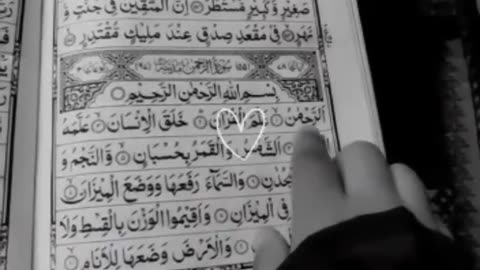 صَغِيْرٍ وَّكَبِيْرٍ مُّسْتَطَرٌ ۝ اِنَّ الْمُتَّقِيْنَ فِيْ جَنّٰتٍ وَّ
نَهَرٍ ۝ فِيْ مَقْعَدِ صِدْقٍ عِنْدَ مَلِيْكٍ مُّقْتَدِرٍ ۝
(٥٥) سُوْرَةُ الرَّحْمٰنِ مَدَنِيَّةٌ
بِسْمِ اللّٰهِ الرَّحْمٰنِ الرَّحِيْمِ ۝
اَلرَّحْمٰنُ ۝ عَلَّمَ الْقُرْاٰنَ ۝ خَلَقَ الْاِنْسَانَ ۝ عَلَّمَهُ
اَلشَّمْسُ وَالْقَمَرُ بِحُسْبَانٍ ۝ وَّالنَّجْمُ وَ
وَالسَّمَآءَ رَفَعَهَا وَوَضَعَ الْمِيْزَانَ ۝
فِى الْمِيْزَانِ ۝ وَاَقِيْمُوا الْوَزْنَ بِالْقِسْطِ وَلَا
وَالْاَرْضَ وَضَعَهَا لِلْاَنَامِ ۝